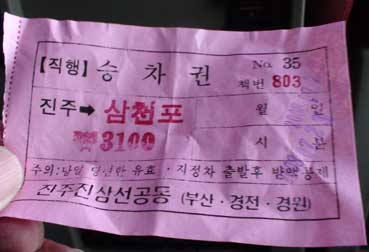 【직행】 승 차 권 No. 35
책번 803
진주➡ 삼천포 월 일
₩3100 시 분
주의: 당일 당선만 유효 · 지정차 출발후 방액공제
진주진삼선공동 (부산 · 경전 · 경원)